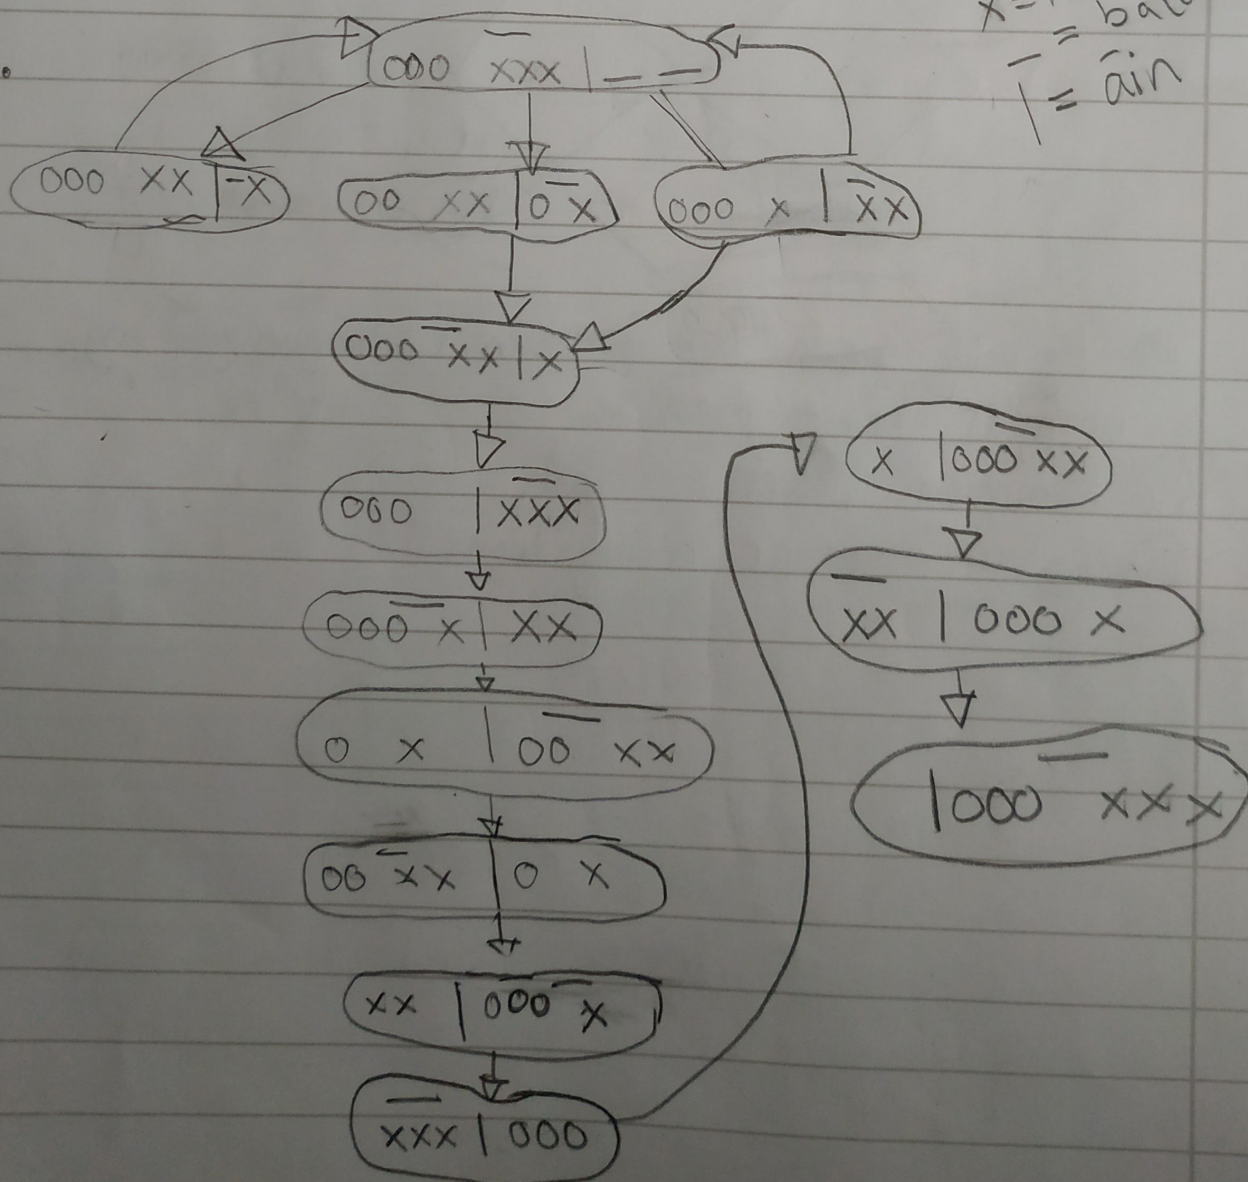 x =
‾ = bat
| = ain
000 ‾ xxx | _ _
000 xx | ‾x
00 xx | 0 ‾ x
000 x | ‾ xx
000 ‾ xx | x
000 | ‾ xxx
000 ‾ x | xx
0 x | 00 ‾ xx
00 ‾ xx | 0 x
xx | 000 ‾ x
‾ xxx | 000
x | 000 ‾ xx
‾ xx | 000 x
| 000 ‾ xxx